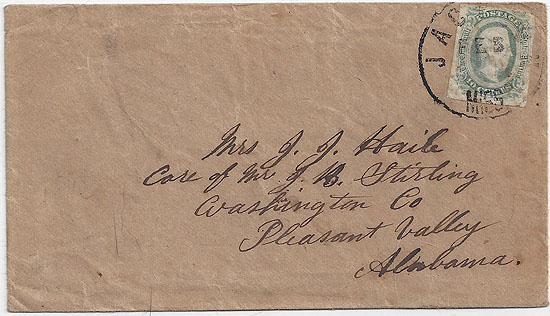 JAC
POSTAGE
MISS
Mrs J. J. Haile
Care of Mr. J. B. Stirling
Washington Co
Pleasant Valley
Alabama.